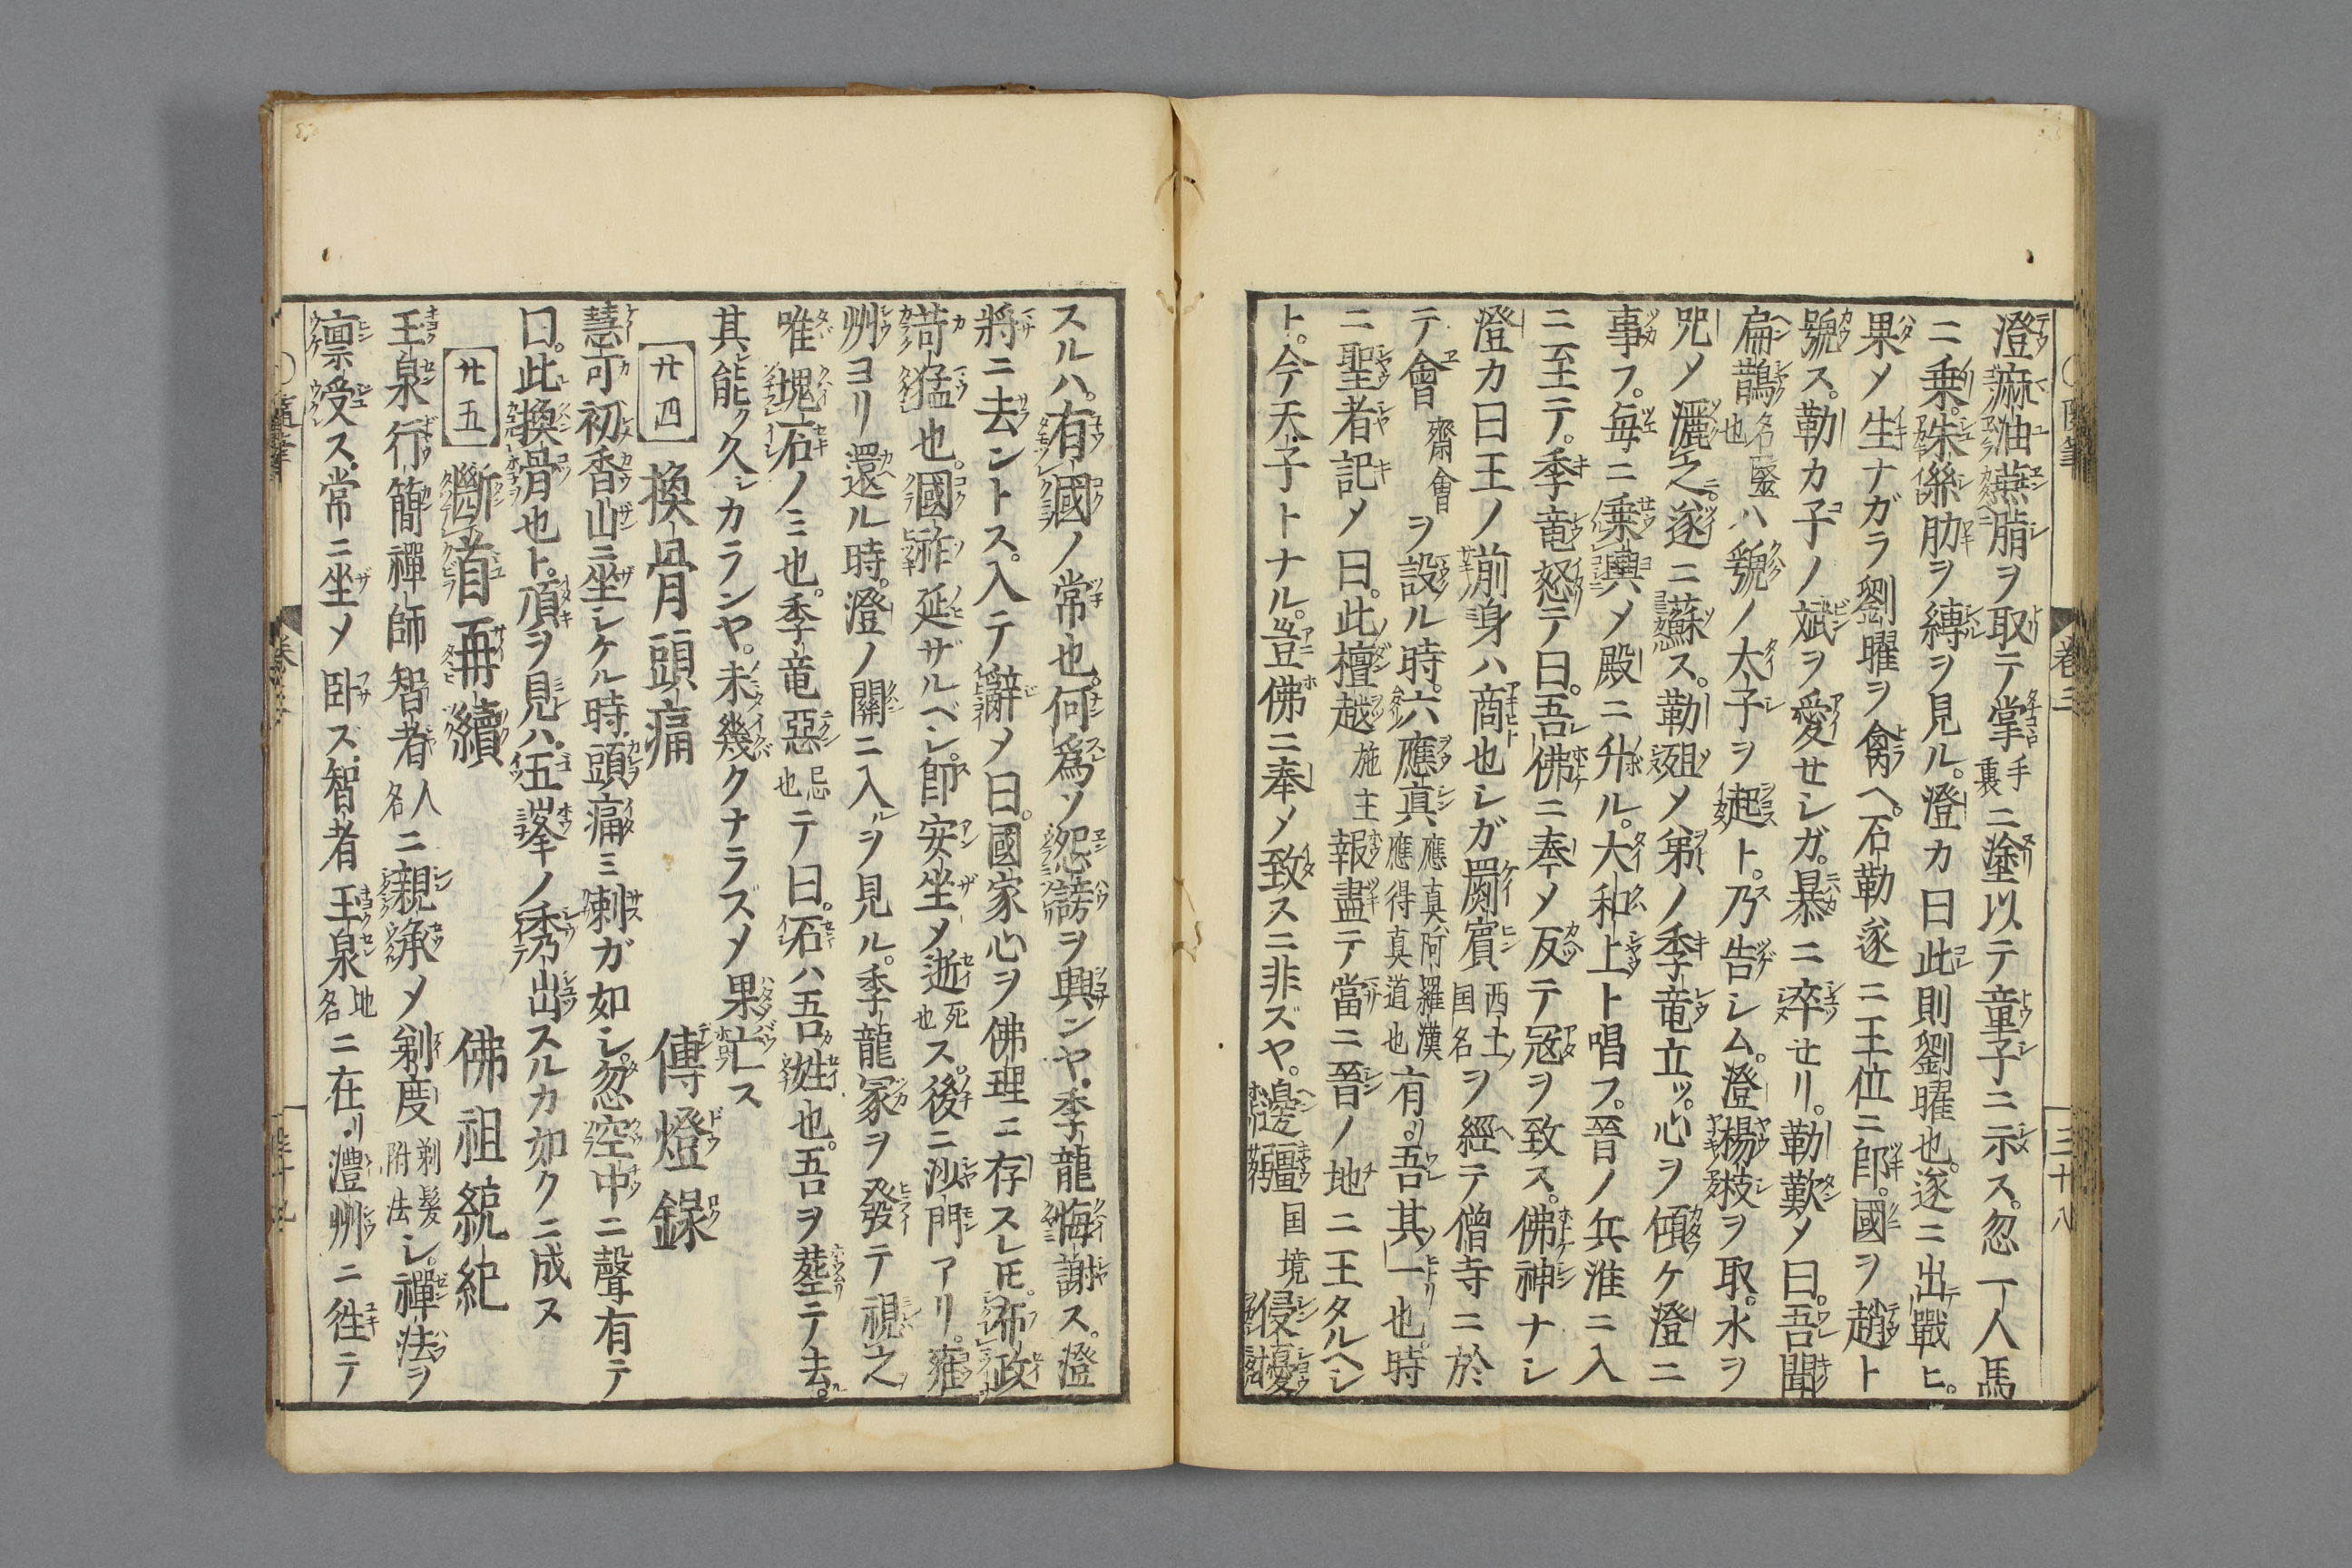 澄麻油燕脂ヲ取テ掌手裏ニ塗以テ童子ニ示ス。忽一人馬
ニ乗。朱絲肋ヲ縛ヲ見ル。澄カ曰此則劉曜也。遂ニ出戰ヒ。
果メ生ナガラ劉曜ヲ禽ヘ。石勒遂ニ王位ニ即。國ヲ趙ト
號ス。勒カ子ノ斌ヲ愛せシガ。暴ニ卒せリ。勒歎メ曰。吾聞
扁鵲名醫也ハ虢ノ太子ヲ起ト。乃告シム。澄楊枝ヲ取。水ヲ
咒メ灑之。遂ニ蘇ス。勒殂メ弟ノ季竜立ツ。心ヲ傾ケ澄ニ
事フ。毎ニ乗輿メ殿ニ升ル。大和上ト唱フ。晉ノ兵淮ニ入
ニ至テ。季竜怒テ曰。吾佛ニ奉メ反テ冦ヲ致ス。佛神ナシ
澄カ曰王ノ前身ハ商也シガ罽賓西土国名ヲ經テ僧寺ニ於
テ會齋會ヲ設ル時。六應真應真阿羅漢應得真道也有リ。吾其一也。時
ニ聖者記メ曰。此檀越施主報盡テ當ニ晉ノ地ニ王タルヘシ
ト。今天子トナル。豈佛ニ奉メ致スニ非ズヤ。邊疆国境侵擾
卷三
三十八
スルハ。有國ノ常也。何爲ソ怨謗ヲ興ンヤ。季龍悔謝ス。澄
將ニ去ントス。入テ辭メ曰。國家心ヲ佛理ニ存スレ圧。布政
苛猛也。國祚延ザルベシ。即安坐メ逝死也ス。後ニ沙門アリ。雍
州ヨリ還ル時。澄ノ關ニ入ルヲ見ル。季龍冢ヲ發テ視之
唯塊石ノミ也。季竜惡忌也テ曰。石ハ吾姓也。吾ヲ塟テ去。
其能ク久シカランヤ。未幾クナラズメ果亡ス
廿四 換骨頭痛 傳燈録
慧可初香山ニ坐シケル時。頭痛ミ刺ガ如シ。忽空中ニ聲有テ
曰。此換骨也ト。頂ヲ見レハ。伍峯ノ秀出スルカ如クニ成ヌ
廿五 斷首再續 佛祖統紀
玉泉行簡禪師智者人名ニ親承メ剃度剃髮附法シ。禪法ヲ
禀受ス。常ニ坐メ卧ズ。智者玉泉地名ニ在リ。澧州ニ徃テ